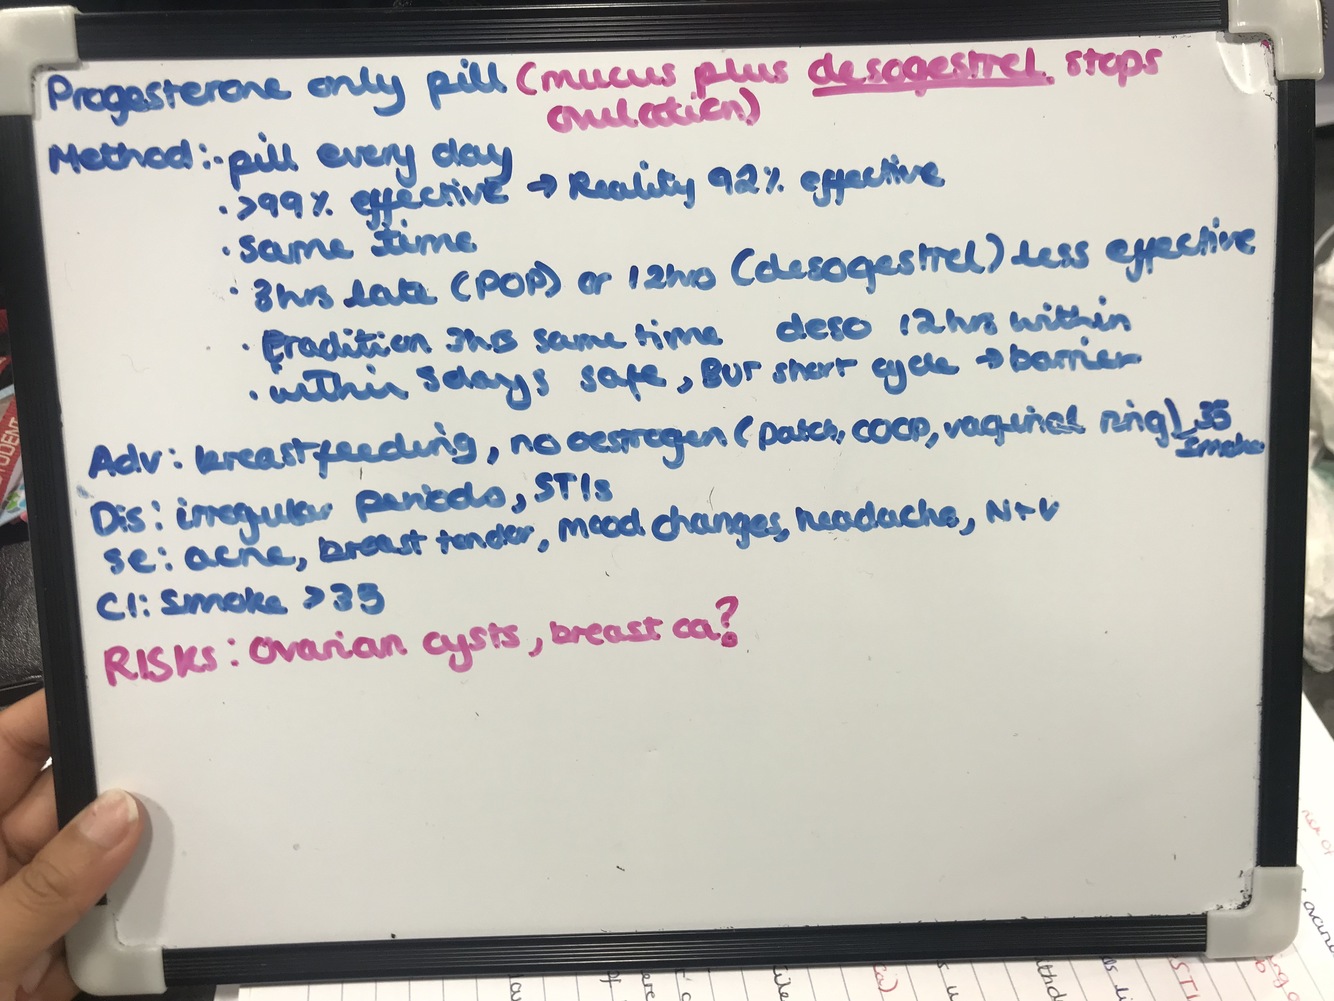 Progesterone only pill (mucus plus desogestrel stops
ovulation)
Method: · pill every day
· >99% effective → Reality 92% effective
· same time
· 3hrs late (POP) or 12hrs (desogestrel) less effective
· tradition 3hrs same time deso 12hrs within
· within 5days safe, BUT short cycle → barrier
Adv: breastfeeding, no oestrogen (patch, COCP, vaginal ring), 35
smoke
Dis: irregular periods, STIs
SE: acne, breast tender, mood changes, headache, N+V
CI: Smoke >35
RISKS: Ovarian cysts, breast ca?
STUDENT
STI